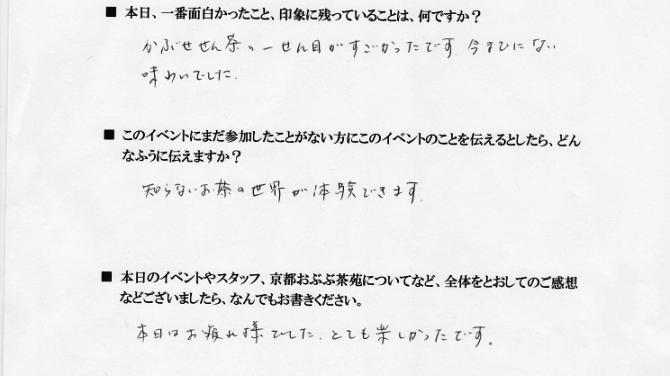 ■ 本日、一番面白かったこと、印象に残っていることは、何ですか？
かぶせせん茶の一せん目がすごかったです。今までにない
味わいでした。
■ このイベントにまだ参加したことがない方にこのイベントのことを伝えるとしたら、どん
なふうに伝えますか？
知らないお茶の世界が体験できます。
■ 本日のイベントやスタッフ、京都おぶぶ茶苑についてなど、全体をとおしてのご感想
などございましたら、なんでもお書きください。
本日はお疲れ様でした。とても楽しかったです。